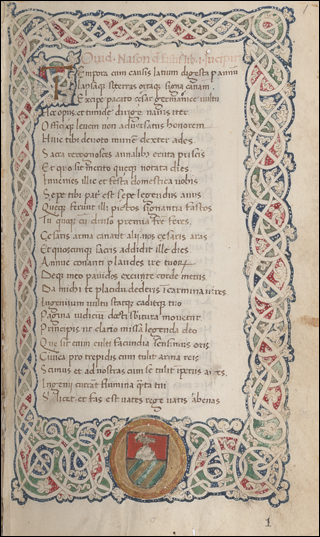 Ouid · Nason
Tempora cum causis latium digesta p annū
Lapsaq; sub terras ortaq; signa canam
Excipe pacato cesar germanice uultu
Hoc opus et timide dirige nauis iter
Officioq; leuem non aduersatus honorem
Huic tibi deuoto numine dexter ades
Sacra recognosces annalibꝰ eruta priscis
Et quo sit merito queq; notata dies
Inuenies illic et festa domestica uobis
Sepe tibi pat̄ est sepe legendus auus
Queq; ferunt illi pictos signantia fastos
Tu quoq; cū druso premia fr̄e feres
Cesaris arma canant alii nos cesaris aras
Et quoscunq; sacris addidit ille dies
Annue conanti p laudes ire tuoꝝ
Deq; meo pauidos excute corde metus
Da michi te placidū dederis ī carmina uires
Ingenium uultu statq; caditq; tuo
Pagina iudiciū docti subitura mouetur
Principis ut clario missa legenda deo
Que sit enim culti facundia sensimus oris
Ciuica pro trepidis cum tulit arma reis
Scimus et ad nostras cum se tulit īpetus artes
Ingenii currāt flumina q̄ta tui
Si licet et fas est uates rege uatis abenas
1